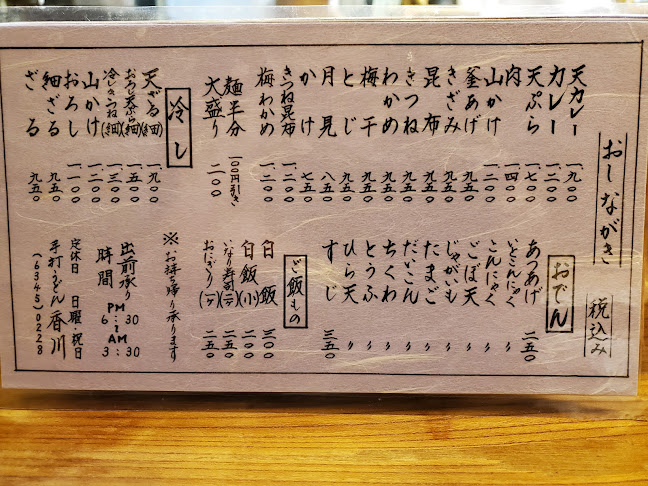 おしながき
税込み
天カレー 一、九〇〇
カレー 一、二五〇
天ぷら 一、七〇〇
肉 一、四〇〇
山かけ 一、二〇〇
釜あげ 九五〇
きざみ 九五〇
昆布 九五〇
きつね 九五〇
わかめ 九五〇
梅干 九五〇
とじ 九五〇
月見 八五〇
かけ 七五〇
きつね昆布 一、二〇〇
梅わかめ 一、二〇〇
麺半分 一〇〇円引き
大盛り 二〇〇
冷し
天ざる(細) 一、九〇〇
おろし天ぷら(細)
冷しきつね(細) 一、三〇〇
山かけ 一、二〇〇
おろし 一、一〇〇
細ざる 九五〇
ざる 九五〇
おでん
あつあげ 二五〇
いとこんにゃく 〃
こんにゃく 〃
ごぼ天 〃
じゃがいも 〃
たまご 〃
だいこん 〃
ちくわ 〃
とうふ 〃
ひら天 〃
すじ 三五〇
ご飯もの
白飯 三〇〇
白飯(小) 二〇〇
いなり寿司(二ケ) 二五〇
おにぎり(二ケ) 二五〇
※お持ち帰り承ります
出前承り
時間 PM 6:30 〜 AM 3:30
定休日 日曜・祝日
手打うどん 香川
(6345)0228